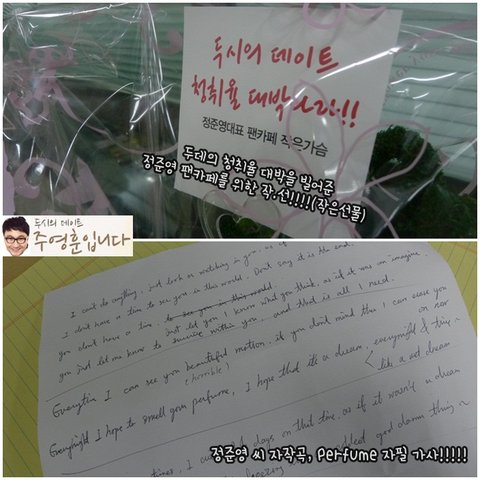 두시의 데이트
청취율 대박나라!!
정준영대표 팬카페 작은가슴
두데의 청취율 대박을 빌어준
정준영 팬카페를 위한 작.선!!!!(작은선물)
두시의 데이트
주영훈입니다
I can't do anything, just look or watching in you, as if
I don't have a time to see you in this world. Don't say it is the end.
you don't have a time to see you in this world.
just let you I know what you think, as if it was an imagine.
you just let me know to survive within you, and that is all I need.
Everytime I can see you beautiful motion. if you don't mind then I can erase you
(horrible)
Everynight I hope to smell your perfume, I hope that it's a dream, everynight & time~
like a wet dream
times, I
days on that time. as if it wasn't a dream
god damn thing~
정준영 씨 자작곡, Perfume 자필 가사!!!!!